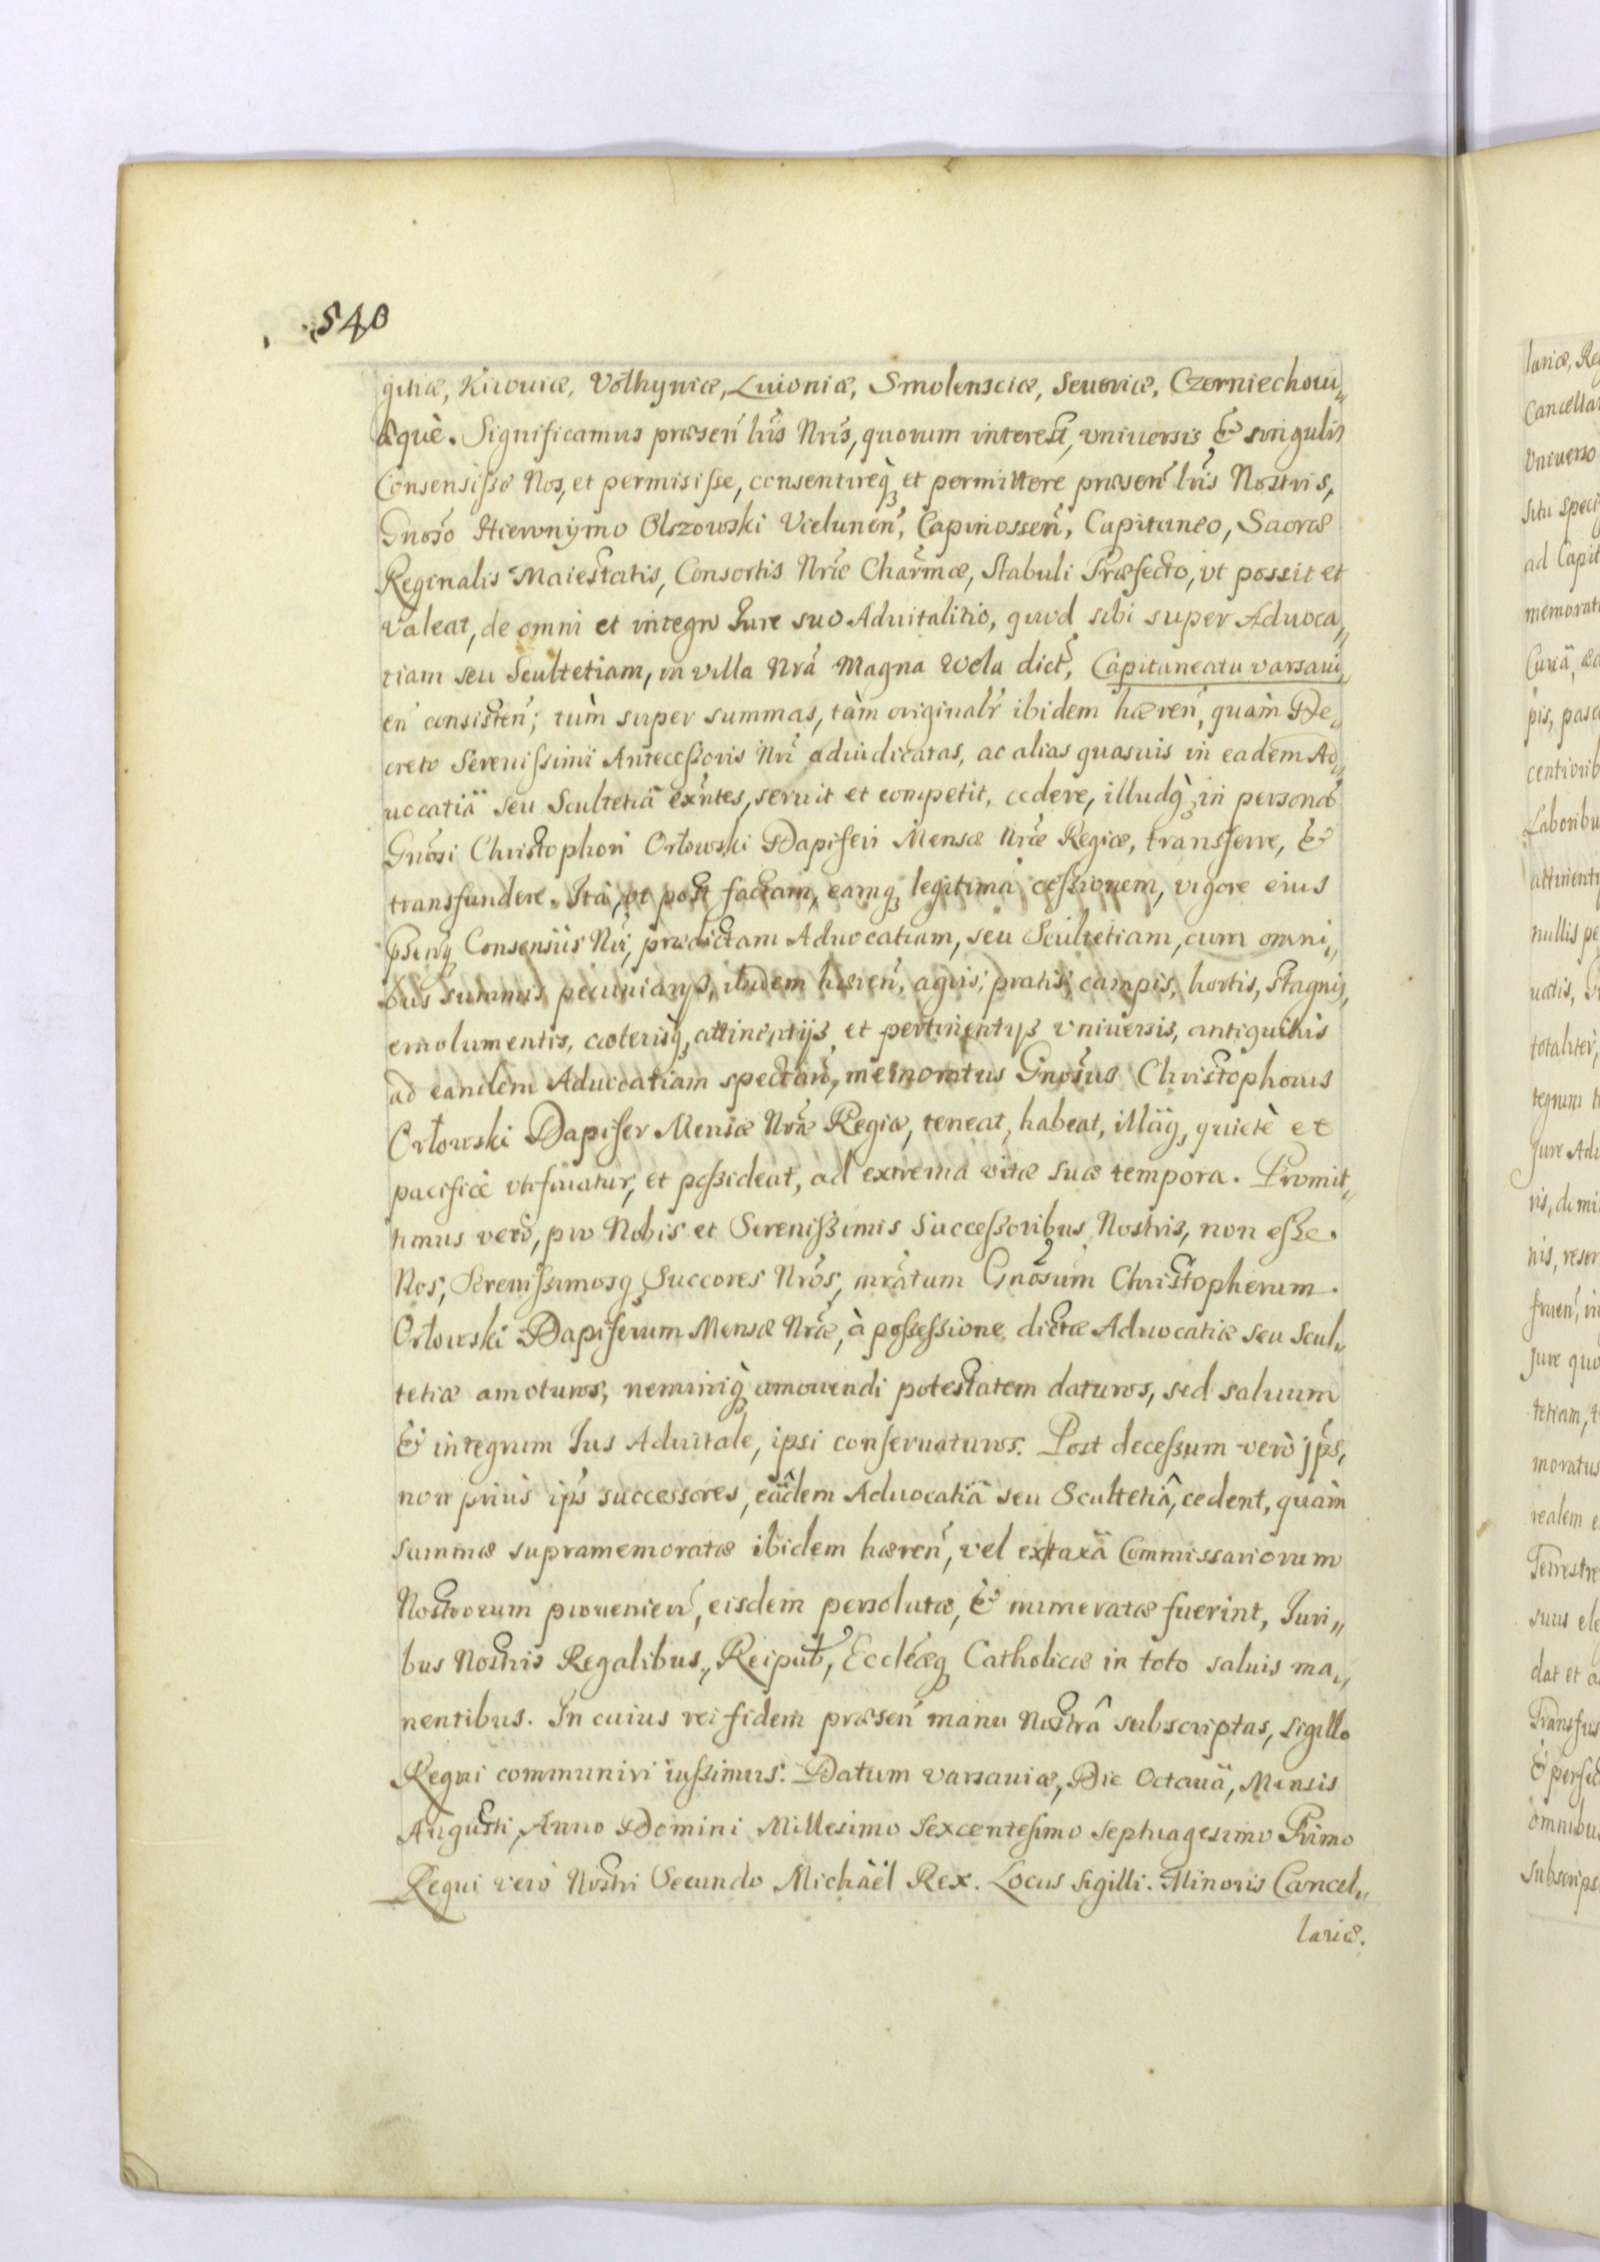 540
gitiæ, Kiiouiæ, Volhyniæ, Liuoniæ, Smolensciæ, Seueriæ, Czerniechoui„
æquè. Significamus præsen̄ lr̄is Nr̄is, quorum interest, vniuersis & singulis
Consensisse Nos, et permisisse, consentireq; et permittere præsen̄ lr̄is Nostris,
Gnoso Hieronymo Olszowski Vielunen̄, Capinossen̄, Capitaneo, Sacræ
Reginalis Maiestatis, Consortis Nr̄æ Char̄mæ, Stabuli Præfecto, vt possit et
valeat, de omni et integro Iure suo Aduitalitio, quod sibi super Aduoca„
tiam seu Scultetiam, in villa Nr̄a Magna Wola dict̄, Capitaneatu varsaui„
en̄ consisten̄; tùm super summas, tàm originalr̄ ibidem hæren̄, quàm De„
creto Serenissimi Antecessoris Nr̄i adiudicatas, ac alias quasuis in eadem Ad„
uocatiä seu Scultetiâ exn̄tes, seruit et competit, cedere, illudq; in personā
Gnosi Christophori Orłowski Dapiferi Mensæ Nr̄æ Regiæ, transferre, &
transfundere. Itâ, vt post factam, eamq; legitimā cessionem, vigore eius
pšenq Consensûs Nr̄i, prædictam Aduocatiam, seu Scultetiam, cum omni„
bus summis pecuniarijs, ibidem hæren̄, agris, pratis, campis, hortis, stagnis,
emolumentis, cæterisq; attinentijs, et pertinentijs vniuersis, antiquitùs
ad eandem Aduocatiam spectan̄, memoratus Gnosus Christophorus
Orłowski Dapifer Mensæ Nr̄æ Regiæ, teneat, habeat, illäq; quietè et
pacificè vtifruatur, et possideat, ad extrema vitæ suæ tempora. Promit„
timus verò, pro Nobis et Serenissimis Successoribus Nostris, non esse.
Nos, Serenissimosq; Succores Nr̄os, mr̄atum Gnosum Christophorum.
Orłowski Dapiferum Mensæ Nr̄æ, à possessione dictæ Aduocatiæ seu Scul„
tetiæ amoturos, neminiq; amouendi potestatem daturos, sed saluum
& integrum Ius Aduitale, ipsi conseruaturos. Post decessum verò jp̄s,
non priùs ip̄s successores, eâdem Aduocatiä seu Scultetiâ, cedent, quàm
summæ supramemoratæ ibidem hæren̄, vel ex taxä Commissariorum
Nostrorum prouenien̄, eisdem persolutæ, & numeratæ fuerint, Iuri„
bus Nostris Regalibus, Reipub̄, Eccleæq; Catholicæ in toto saluis ma„
nentibus. In cuius rei fidem præsen̄ manu Nostrâ subscriptas, sigillo
Regni communiri iussimus. Datum varsauiæ, Die Octauä, Mensis
Augusti, Anno Domini Millesimo Sexcentesimo Septuagesimo Primo
Regni verò Nostri Secundo Michaël Rex. Locus sigilli. Minoris Cancel„
lariæ.